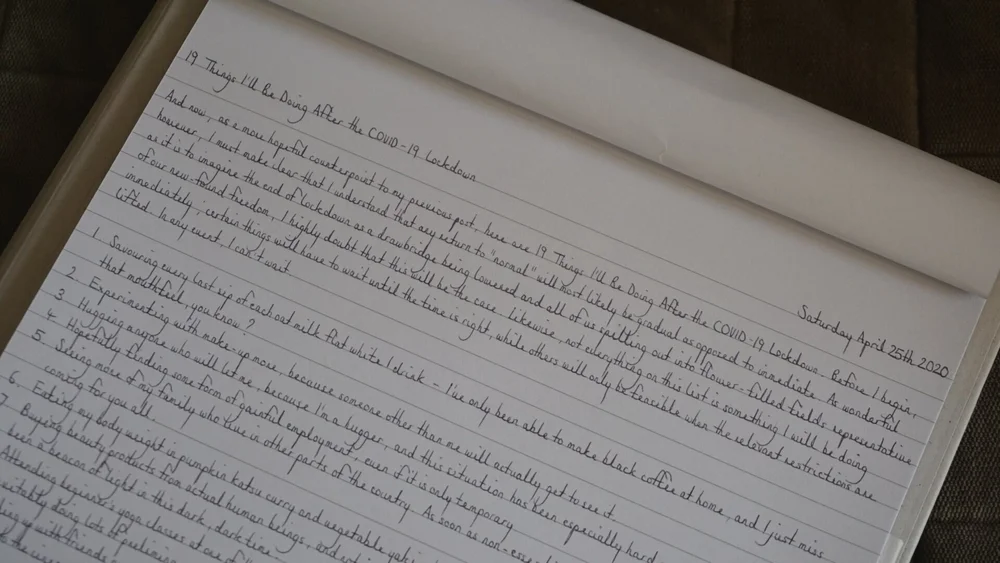 19 Things I'll Be Doing After the COVID-19 Lockdown
Saturday April 25th 2020
And now, as a more hopeful counterpoint to my previous post, here are 19 Things I'll Be Doing After the COVID-19 Lockdown. Before I begin,
however, I must make clear that I understand that any return to "normal" will most likely be gradual as opposed to immediate. As wonderful
as it is to imagine the end of lockdown as a drawbridge being lowered and all of us spilling out into flower-filled fields representative
of our new-found freedom, I highly doubt that this will be the case. Likewise, not everything on this list is something I will be doing
immediately; certain things will have to wait until the time is right, while others will only be feasible when the relevant restrictions are
lifted. In any event, I can't wait.
1. Savouring every last sip of each oat milk flat white I drink - I've only been able to make black coffee at home, and I just miss
that mouthfeel, you know?
2. Experimenting with make-up more, because someone other than me will actually get to see it.
3. Hugging anyone who will let me, because I'm a hugger, and this situation has been especially hard
4. Hopefully finding some form of gainful employment, even if it is only temporary.
5. Seeing more of my family who live in other parts of the country. As soon as non-esse
coming for you all.
6. Eating my body weight in pumpkin katsu curry and vegetable yaki
7. Buying beauty products from actual human beings, and
been a beacon of light in this dark, dark time.
Attending beginners' yoga classes at one of
doing lots of
up with friends